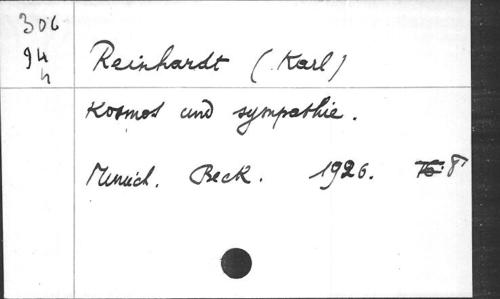 306
94
h
Reinhardt (Karl)
Kosmos und sympathie.
Munich. Beck. 1926. 8°